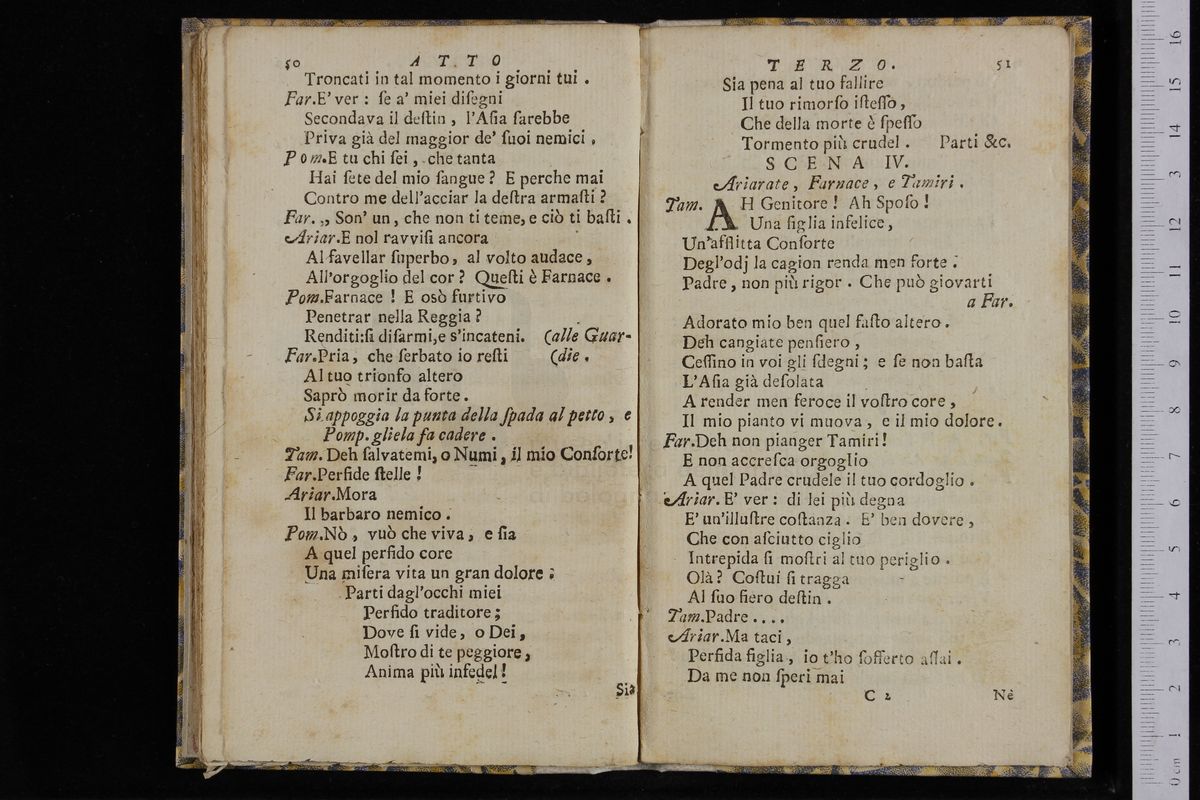 50 A T T O
Troncati in tal momento i giorni tui .
Far.E' ver : ſe a' miei diſegni
Secondava il deſtin , l'Aſia ſarebbe
Priva già del maggior de' ſuoi nemici .
Pom.E tu chi ſei , che tanta
Hai ſete del mio ſangue ? E perche mai
Contro me dell'acciar la deſtra armaſti ?
Far. „ Son' un , che non ti teme, e ciò ti baſti .
Ariar.E nol ravviſi ancora
Al favellar ſuperbo , al volto audace ,
All'orgoglio del cor ? Queſti è Farnace .
Pom.Farnace ! E osò furtivo
Penetrar nella Reggia ?
Renditi:ſi diſarmi,e s'incateni. (alle Guar-
Far.Pria , che ſerbato io reſti (die .
Al tuo trionfo altero
Saprò morir da forte .
Si appoggia la punta della ſpada al petto , e
Pomp. gliela fa cadere .
Tam. Deh ſalvatemi, o Numi , il mio Conſorte!
Far.Perfide ſtelle !
Ariar.Mora
Il barbaro nemico .
Pom.Nò , vuò che viva , e ſia
A quel perfido core
Una miſera vita un gran dolore :
Parti dagl'occhi miei
Perfido traditore ;
Dove ſi vide , o Dei ,
Moſtro di te peggiore ,
Anima più infedel !
Sia
T E R Z O . 51
Sia pena al tuo fallire
Il tuo rimorſo iſteſſo ,
Che della morte è ſpeſſo
Tormento più crudel . Parti &c.
S C E N A IV.
Ariarate , Farnace , e Tamiri .
Tam. AH Genitore ! Ah Spoſo !
Una figlia infelice ,
Un'afflitta Conſorte
Degl'odj la cagion renda men forte .
Padre , non più rigor . Che può giovarti
a Far.
Adorato mio ben quel faſto altero .
Deh cangiate penſiero ,
Ceſſino in voi gli ſdegni ; e ſe non baſta
L'Aſia già deſolata
A render men feroce il voſtro core ,
Il mio pianto vi muova , e il mio dolore .
Far.Deh non pianger Tamiri !
E non accreſca orgoglio
A quel Padre crudele il tuo cordoglio .
Ariar. E' ver : di lei più degna
E' un'illuſtre coſtanza . E' ben dovere ,
Che con aſciutto ciglio
Intrepida ſi moſtri al tuo periglio .
Olà ? Coſtui ſi tragga
Al ſuo fiero deſtin .
Tam.Padre . . . .
Ariar.Ma taci ,
Perfida figlia , io t'ho ſofferto aſſai .
Da me non ſperi mai
C 2 Nè